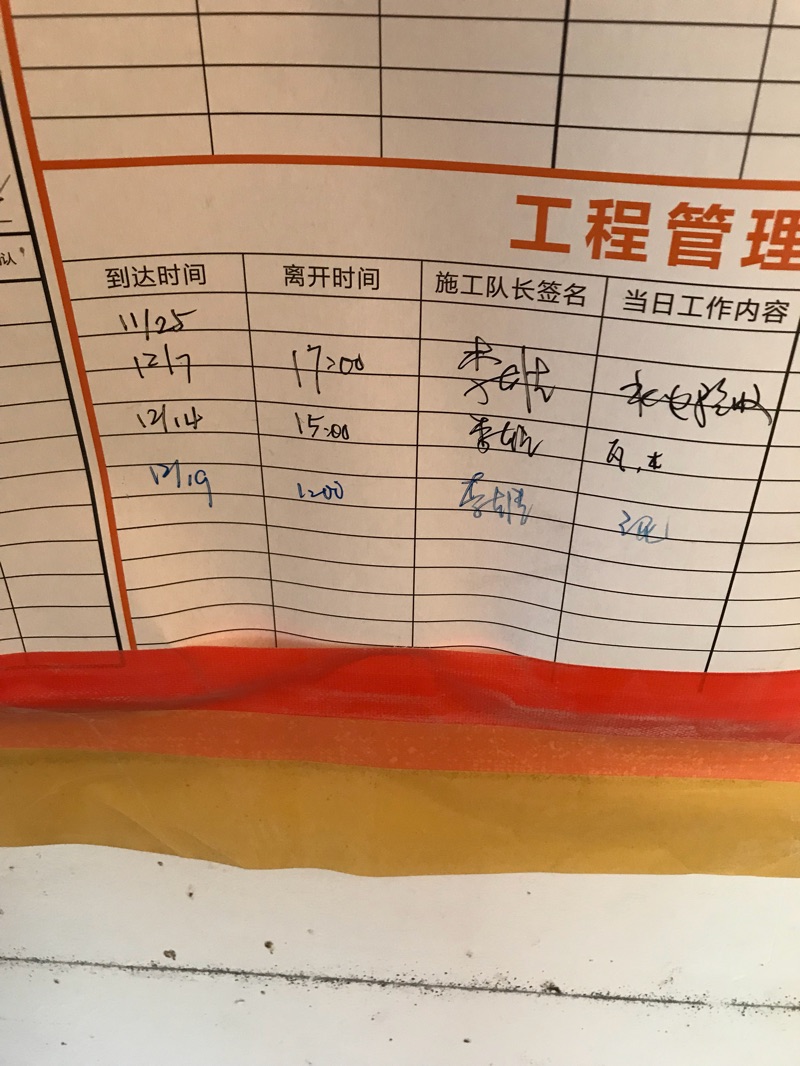 工程管理
到达时间 离开时间 施工队长签名 当日工作内容
11/25
12/7 17:00 水电验收
12/14 15:00 瓦.木
12/19 1:00